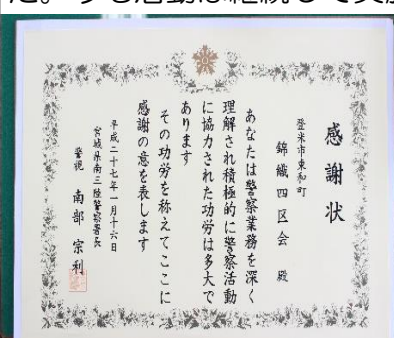 感謝状
登米市東和町
錦織四区会 殿
あなたは警察業務を深く
理解され積極的に警察活動
に協力された功労は多大で
あります
その功労を称えてここに
感謝の意を表します
平成二十七年一月十六日
宮城県南三陸警察署長
警視 南部 宗利